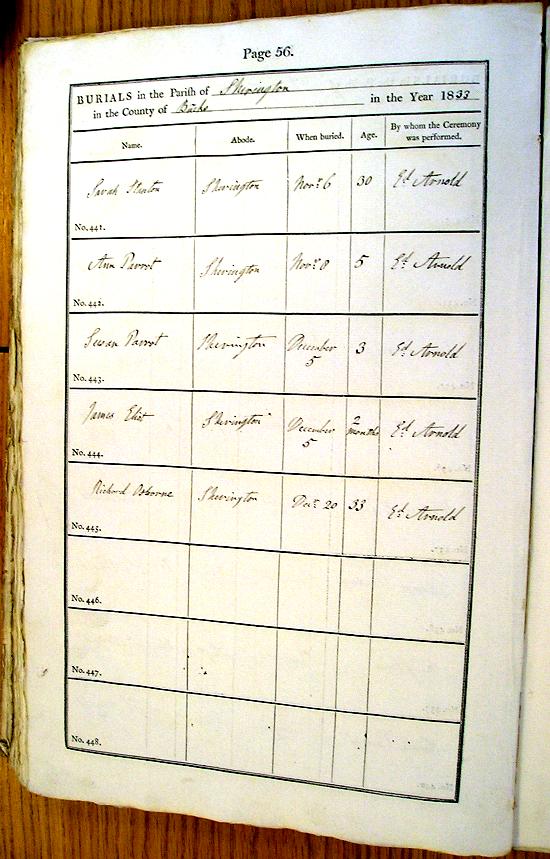 Page 56.
BURIALS in the Parish of Sherington
in the County of Bucks in the Year 1833
Name. Abode. When buried. Age. By whom the Ceremony was performed.
Sarah Sherington Novr. 6 30 Ed. Arnold
No. 441.
Ann Parrot Sherington Novr. 8 5 Ed. Arnold
No. 442.
Susan Parrot Sherington December 5 3 Ed. Arnold
No. 443.
James Eliot Sherington December 5 2 months Ed. Arnold
No. 444.
Richard Osborne Sherington Decr. 20 33 Ed. Arnold
No. 445.
No. 446.
No. 447.
No. 448.